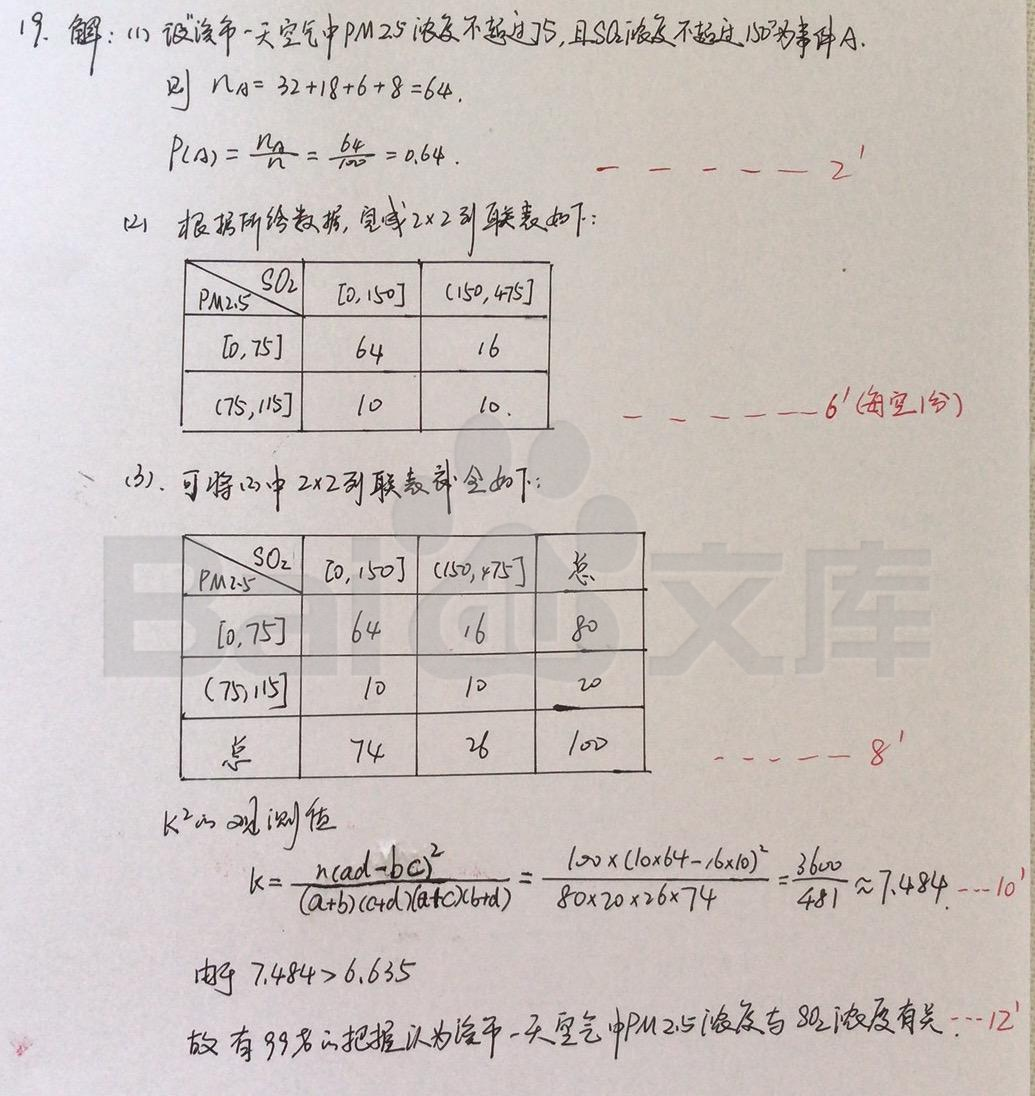 19. 解：(1) 设"该市一天空气中PM2.5浓度不超过75，且SO2浓度不超过150"为事件A.
则 nA = 32+18+6+8 = 64.
P(A) = nA/n = 64/100 = 0.64. - - - - - 2'
(2) 根据所给数据，完成2×2列联表如下：
SO2 PM2.5 [0,150] (150,475]
[0,75] 64 16
(75,115] 10 10. - - - - - 6'（每空1分）
(3). 可将(2)中2×2列联表补全如下：
SO2 PM2.5 [0,150] (150,475] 总
[0,75] 64 16 80
(75,115] 10 10 20
总 74 26 100 - - - - - 8'
K²的观测值
k = n(ad-bc)²/(a+b)(c+d)(a+c)(b+d) = 100×(10×64-16×10)²/80×20×26×74 = 3600/481 ≈ 7.484. ---10'
由于 7.484 > 6.635
故有99%的把握认为该市一天空气中PM2.5浓度与SO2浓度有关. ---12'
Bai du 文库